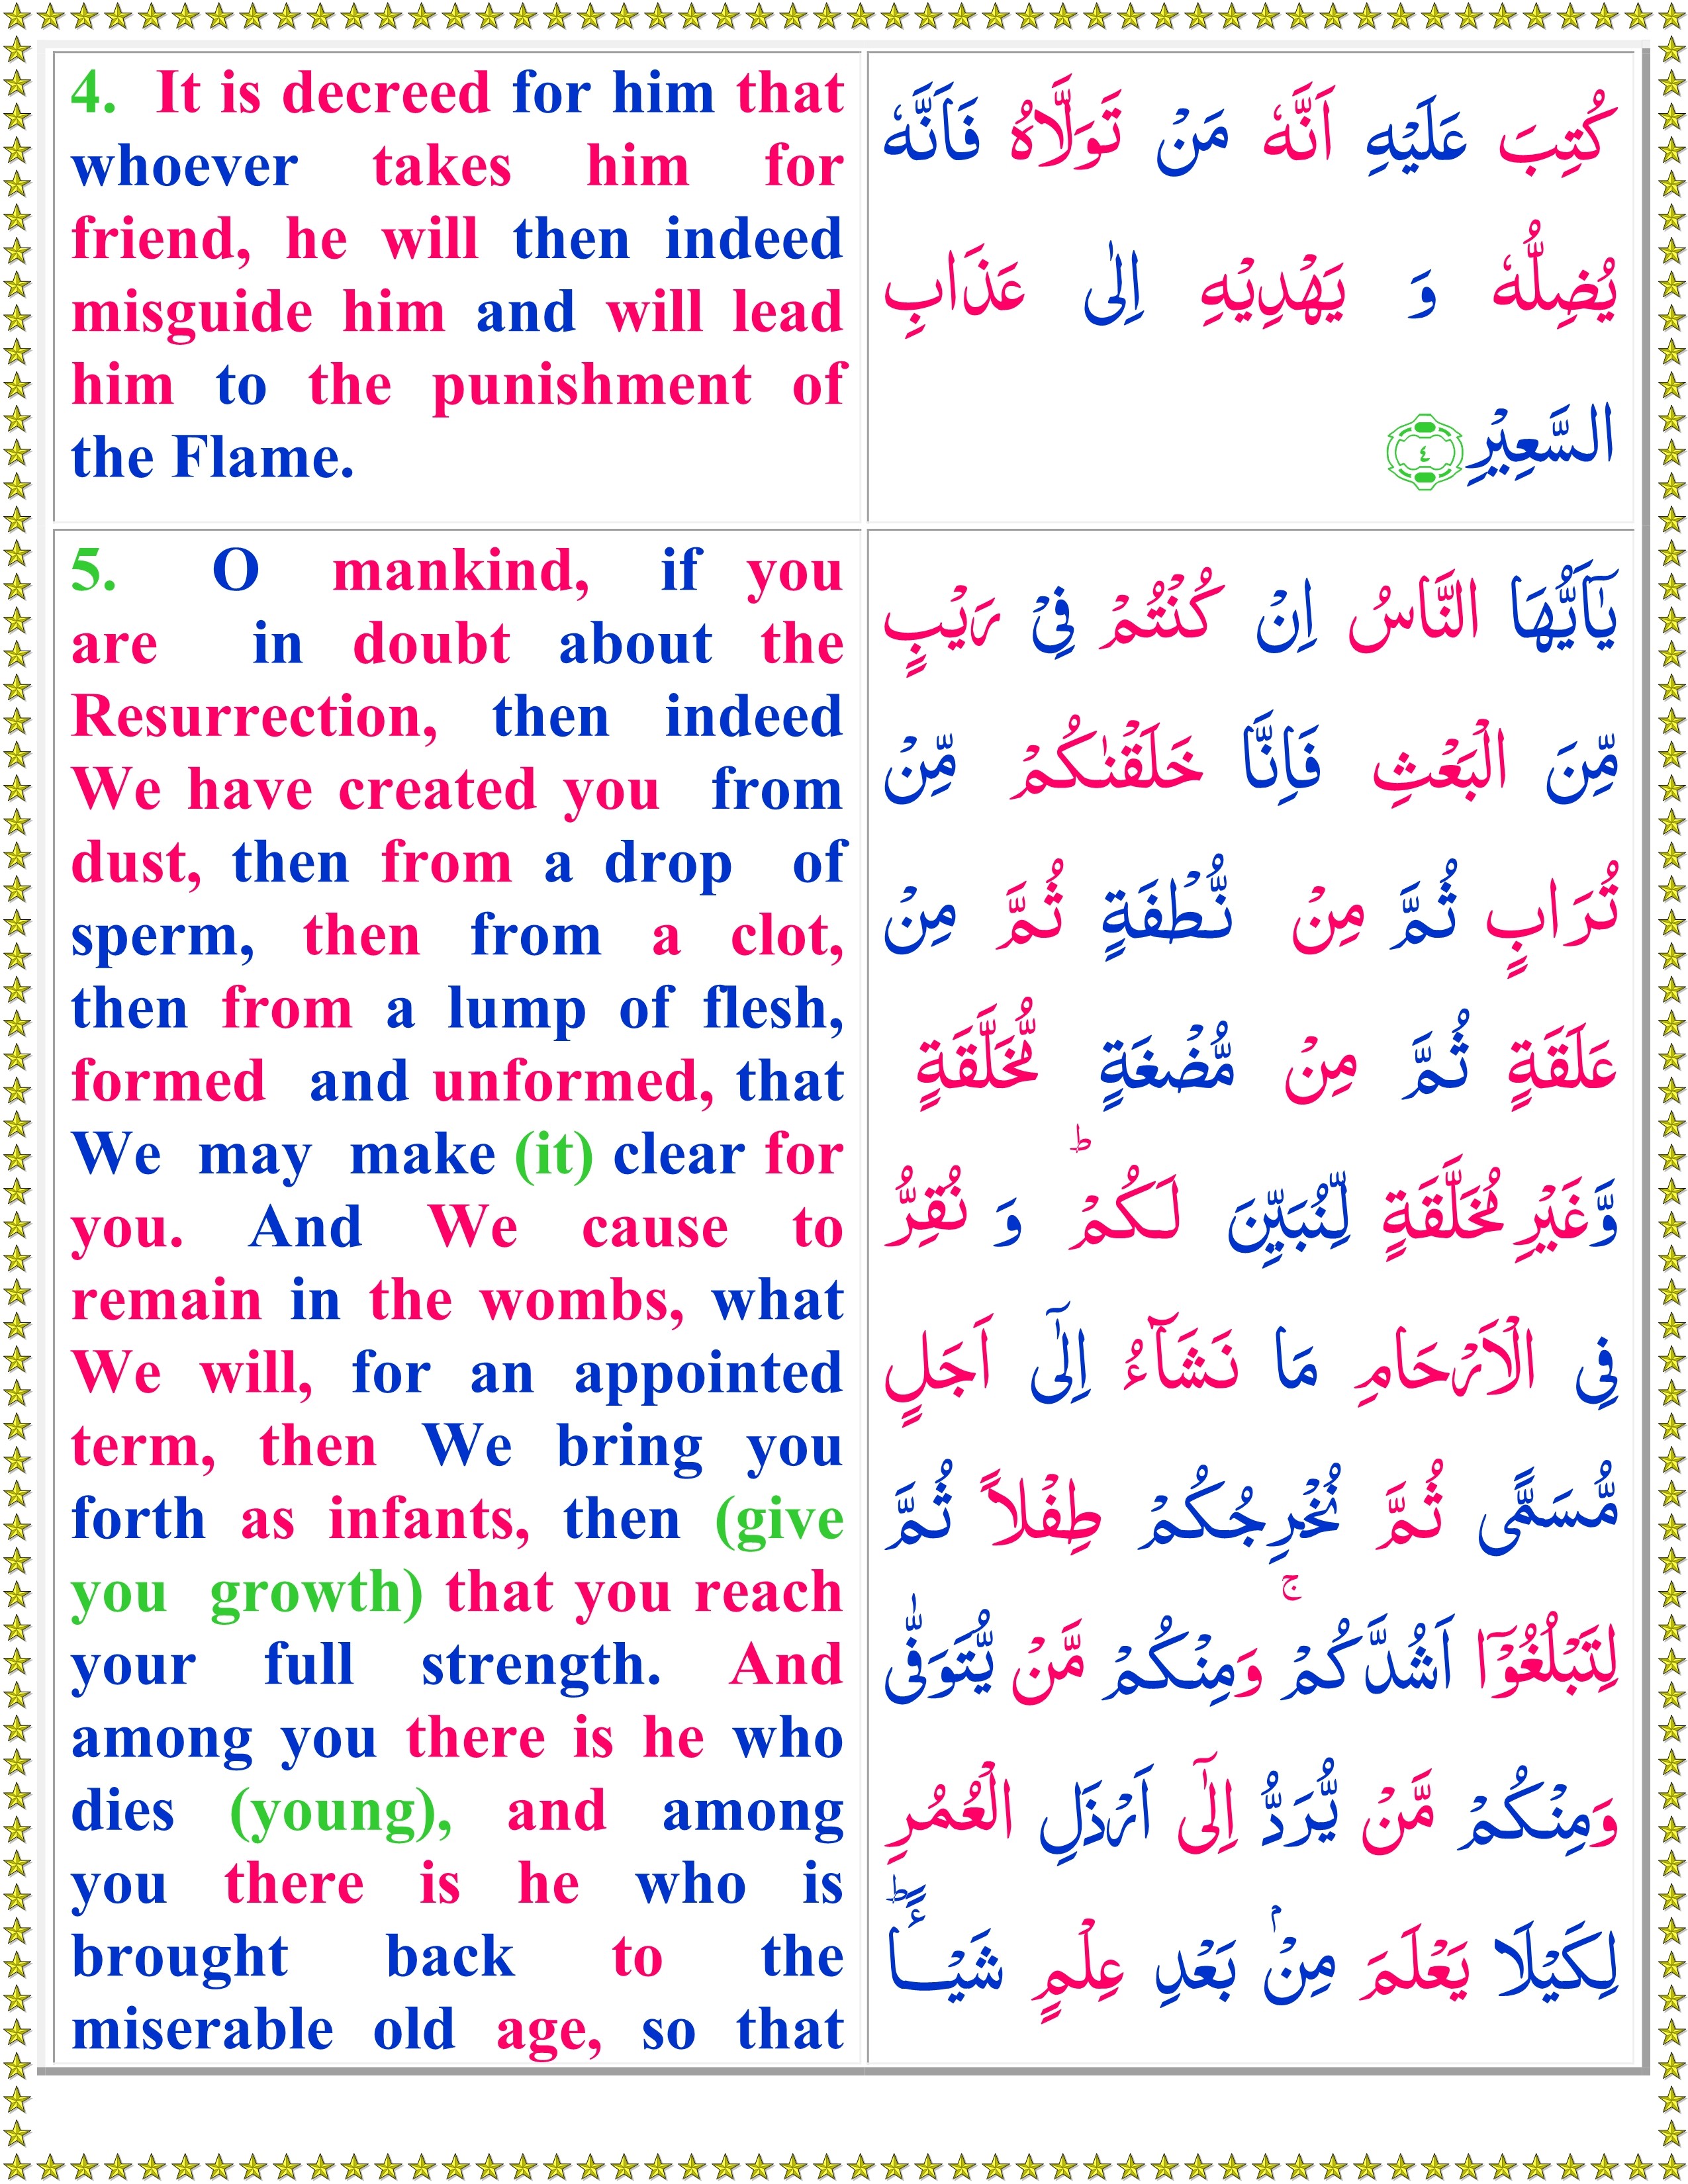 4. It is decreed for him that
whoever takes him for
friend, he will then indeed
misguide him and will lead
him to the punishment of
the Flame.
كُتِبَ عَلَيْهِ اَنَّهٗ مَنْ تَوَلَّاهُ فَاَنَّهٗ
يُضِلُّهٗ وَ يَهْدِيْهِ اِلٰى عَذَابِ
السَّعِيْرِ ٤
5. O mankind, if you
are in doubt about the
Resurrection, then indeed
We have created you from
dust, then from a drop of
sperm, then from a clot,
then from a lump of flesh,
formed and unformed, that
We may make (it) clear for
you. And We cause to
remain in the wombs, what
We will, for an appointed
term, then We bring you
forth as infants, then (give
you growth) that you reach
your full strength. And
among you there is he who
dies (young), and among
you there is he who is
brought back to the
miserable old age, so that
يٰۤاَيُّهَا النَّاسُ اِنْ كُنْتُمْ فِىْ رَيْبٍ
مِّنَ الْبَعْثِ فَاِنَّا خَلَقْنٰكُمْ مِّنْ
تُرَابٍ ثُمَّ مِنْ نُّطْفَةٍ ثُمَّ مِنْ
عَلَقَةٍ ثُمَّ مِنْ مُّضْغَةٍ مُّخَلَّقَةٍ
وَّغَيْرِ مُخَلَّقَةٍ لِّنُبَيِّنَ لَـكُمْ‌ؕ وَ نُقِرُّ
فِى الْاَرْحَامِ مَا نَشَآءُ اِلٰٓى اَجَلٍ
مُّسَمًّى ثُمَّ نُخْرِجُكُمْ طِفْلًا ثُمَّ
لِتَبْلُغُوْۤا اَشُدَّكُمْ‌ۚ وَمِنْكُمْ مَّنْ يُّتَوَفّٰى
وَمِنْكُمْ مَّنْ يُّرَدُّ اِلٰٓى اَرْذَلِ الْعُمُرِ
لِكَيْلَا يَعْلَمَ مِنْۢ بَعْدِ عِلْمٍ شَيْــًٔا‌ؕ